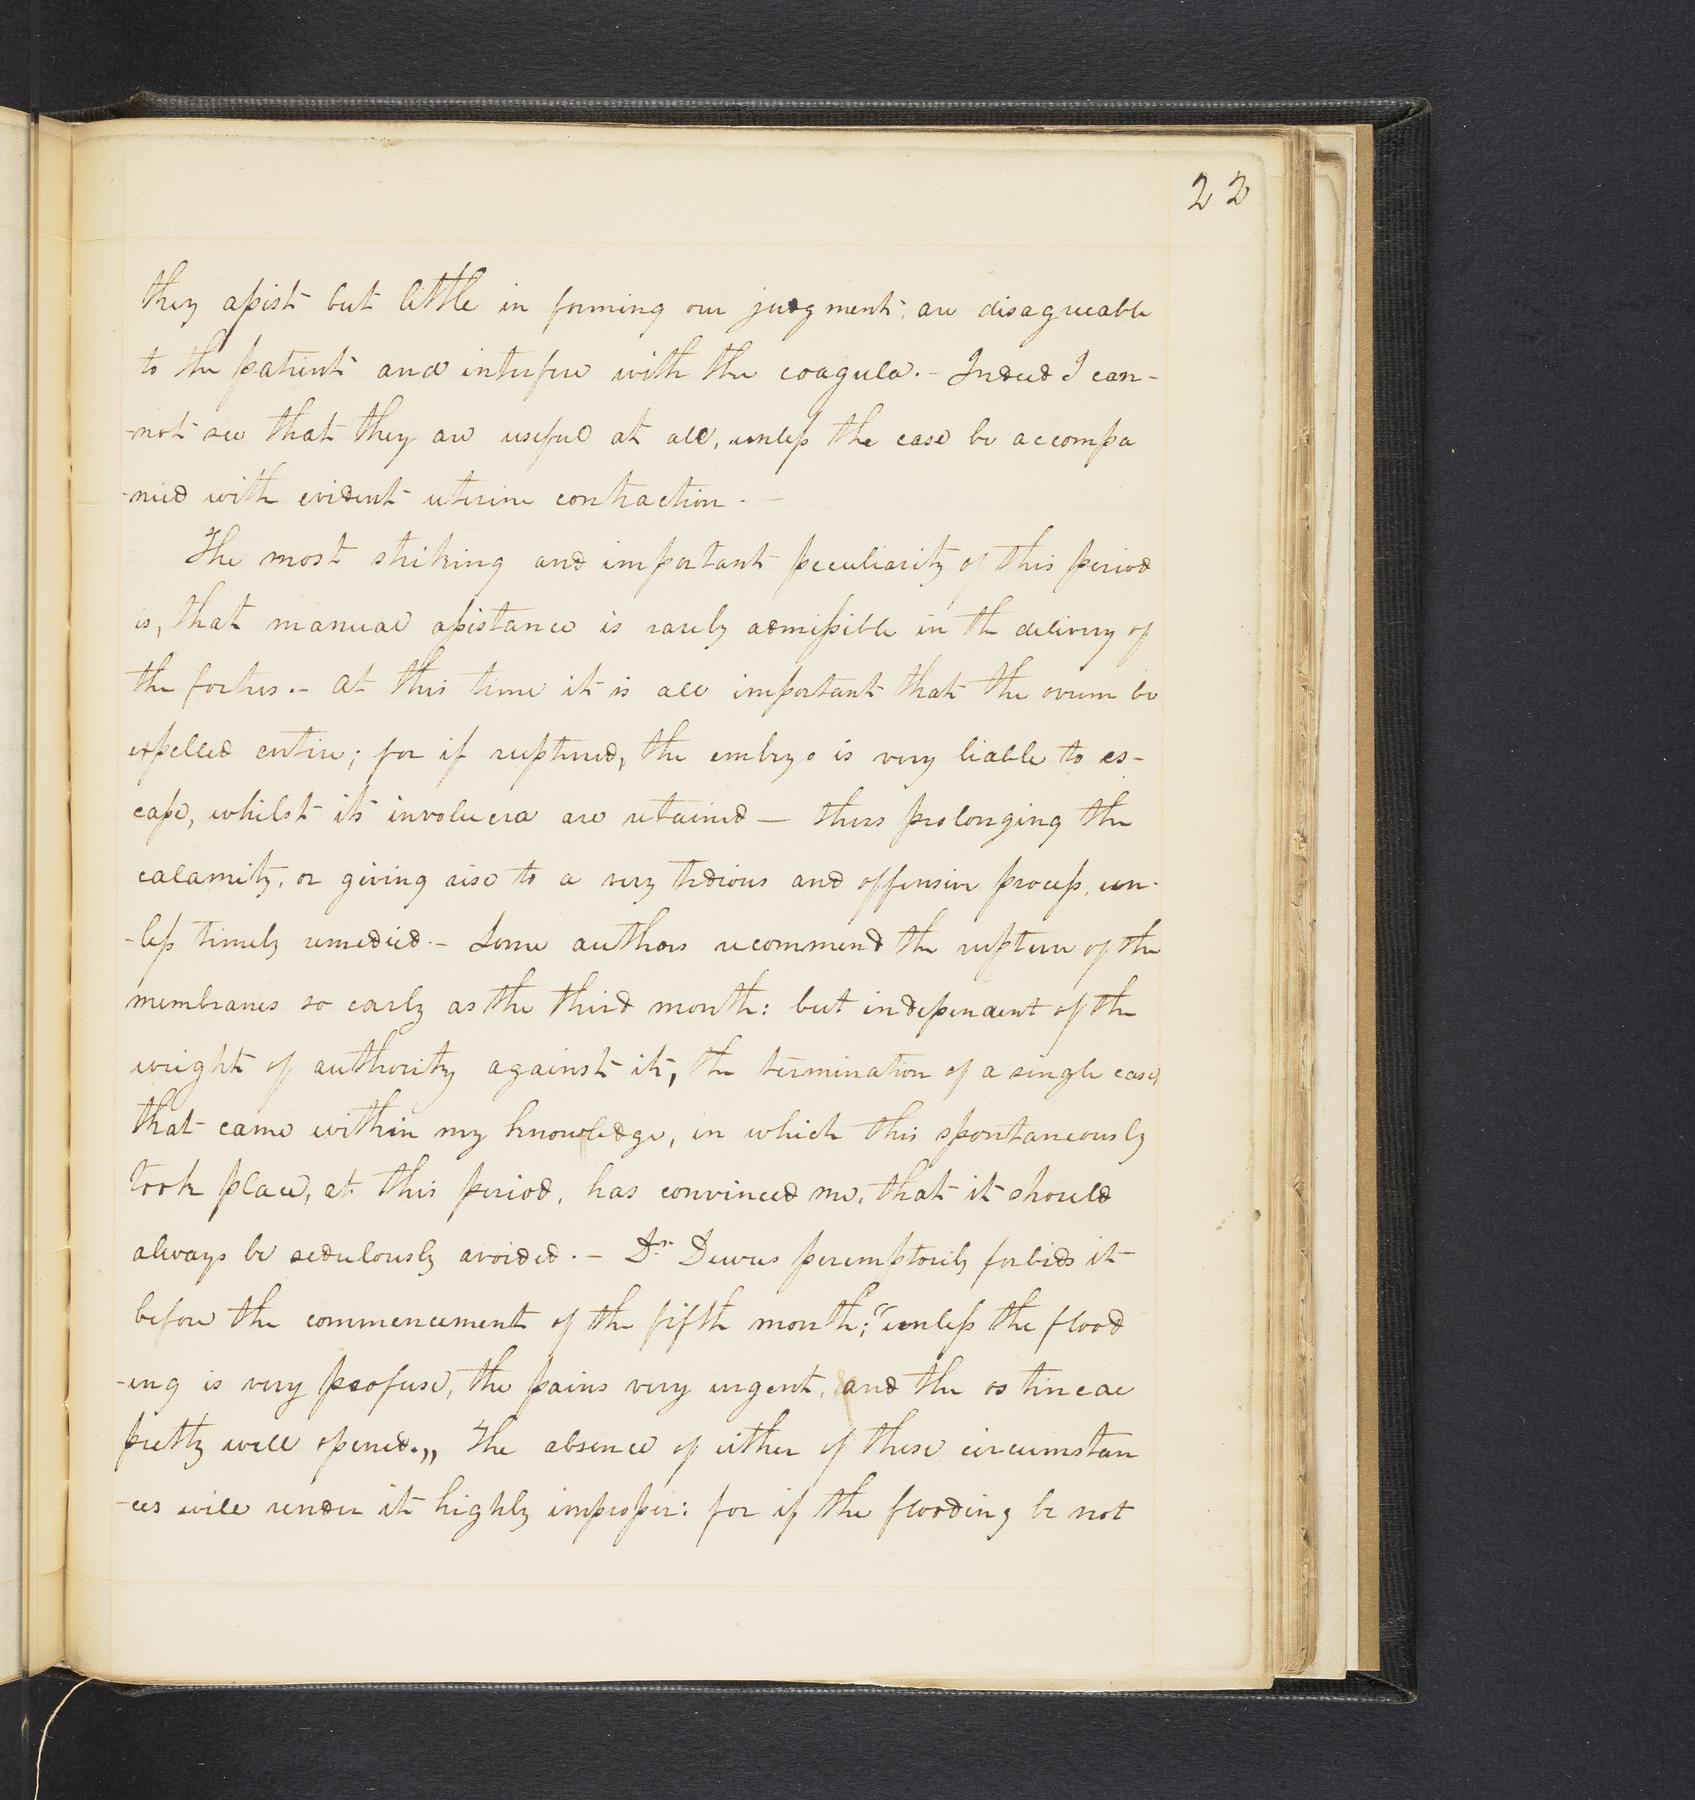 22
they assist but little in forming our judgment; are disagreeable
to the patient and interfere with the coagula.- Indeed I can-
-not see that they are useful at all, unless the case be accompa
-nied with evident uterine contraction. -
The most striking and important peculiarity of this period
is, that manual assistance is rarely admissible in the delivery of
the foetus.- At this time it is all important that the ovum be
expelled entire; for if ruptured, the embryo is very liable to es-
cape, whilst its involucra are retained — thus prolonging the
calamity, or giving rise to a very tedious and offensive process, un-
-less timely remedied.- Some authors recommend the rupture of the
membranes so early as the third month: but independent of the
weight of authority against it, the termination of a single case,
that came within my knowledge, in which this spontaneously
took place, at this period, has convinced me, that it should
always be sedulously avoided.- Dr. Dewees peremptorily forbids it
before the commencement of the fifth month; "unless the flood
-ing is very profuse, the pains very urgent, and the os tincae
pretty well opened.„ The absence of either of these circumstan
-ces will render it highly improper: for if the flooding be not